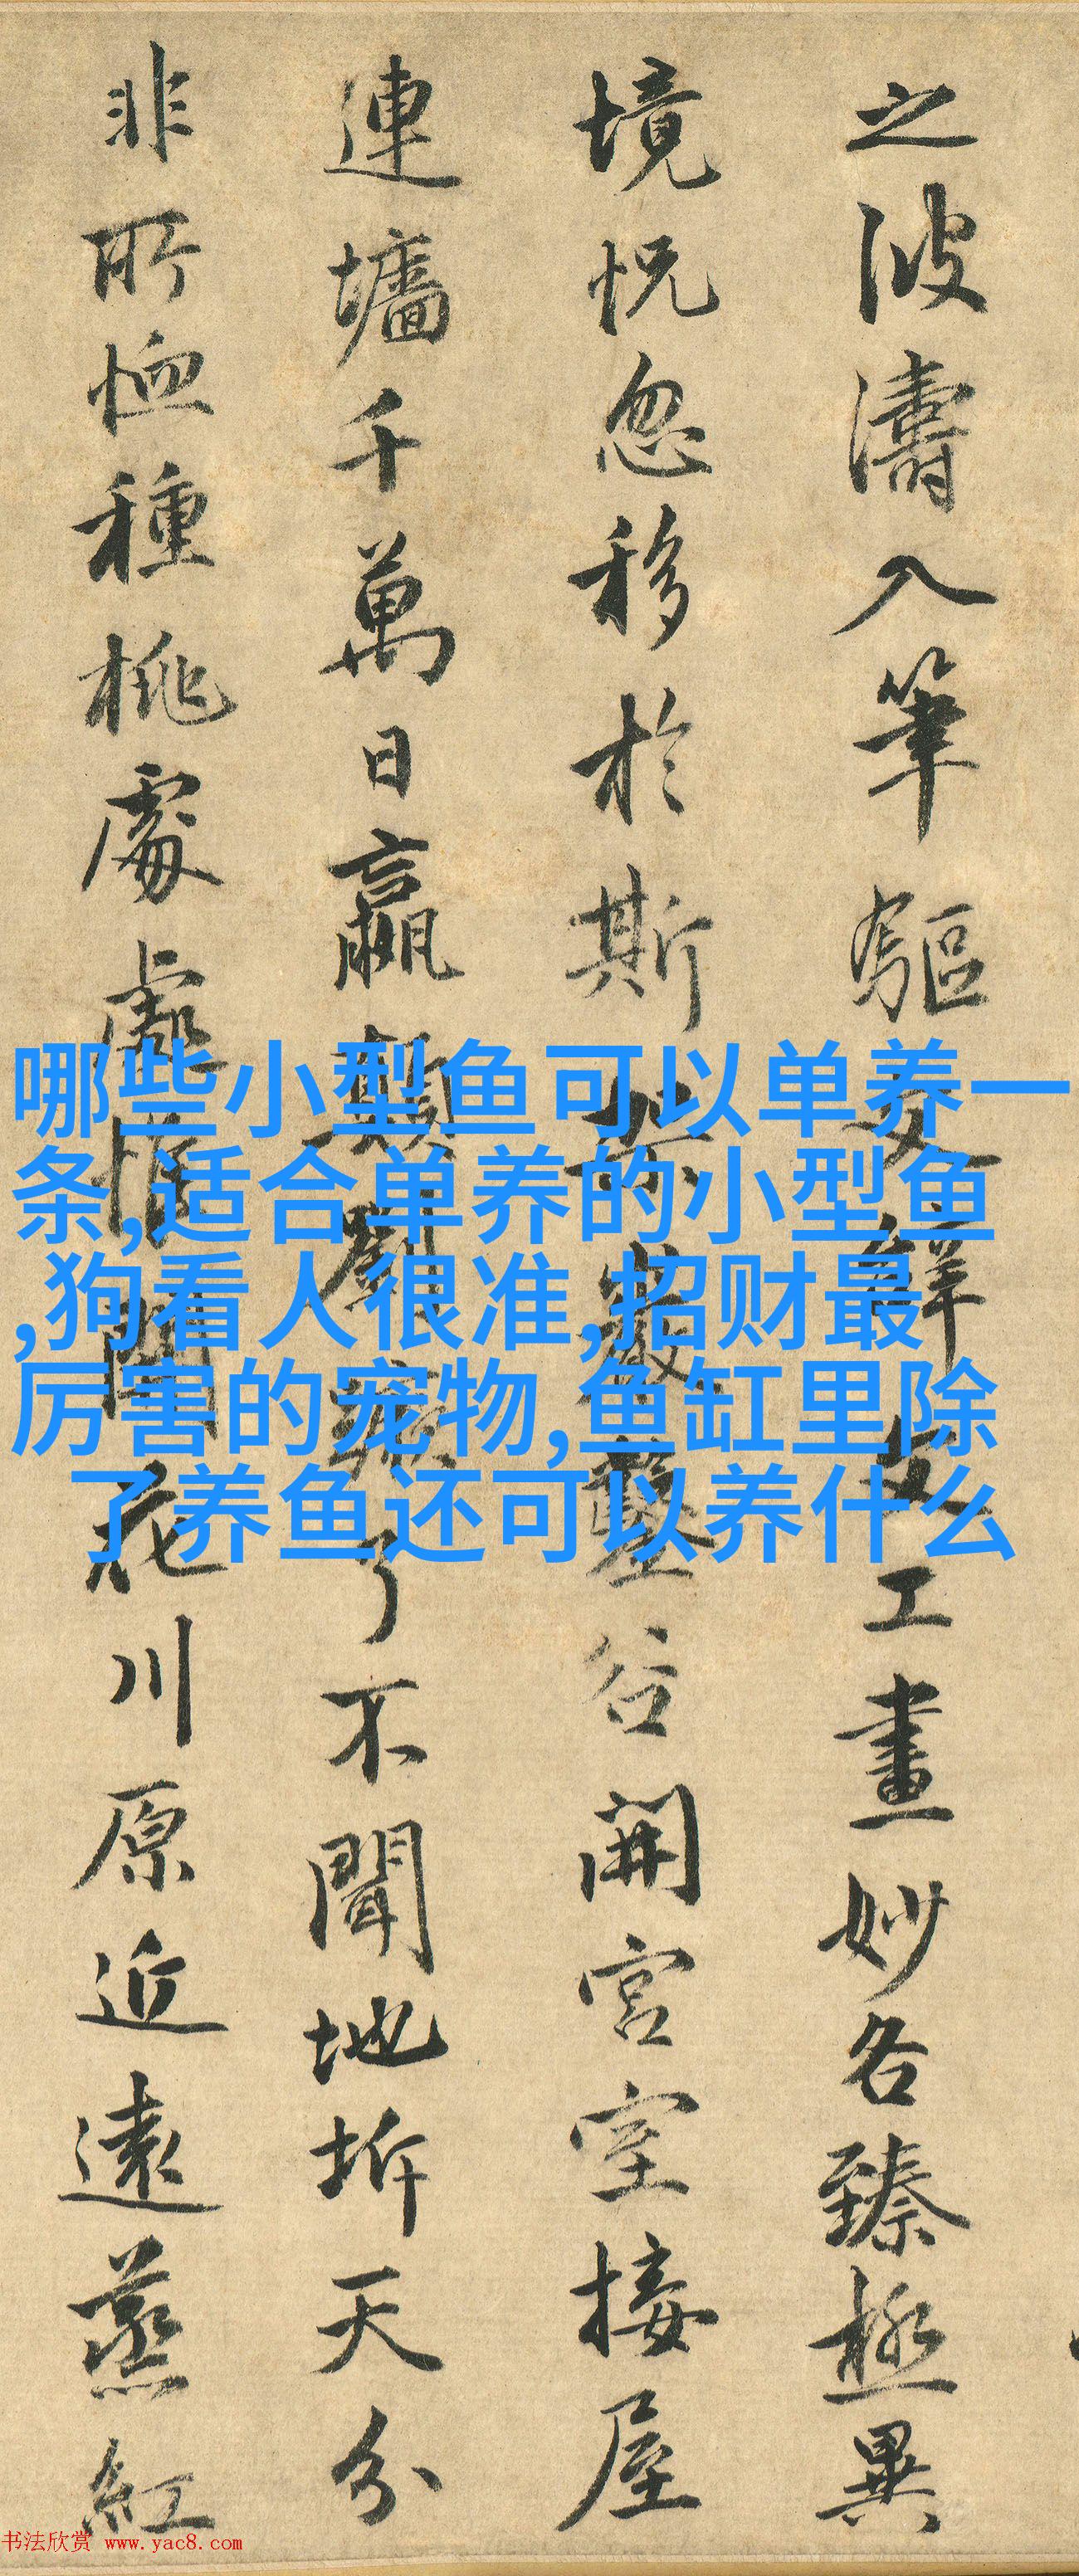 之波濤入筆驅文辭文工畫妙各臻極異
境恍忽移於斯架巖鑿谷開宮室接屋
連墻千萬日嬴顛劉蹶了不聞地坼天分
非所恤種桃處處惟開花川原近遠蒸紅
哪些小型鱼可以单养一
条,适合单养的小型鱼
,狗看人很准,招财最
厉害的宠物,鱼缸里除
了养鱼还可以养什么
书法欣赏 www.yac8.com